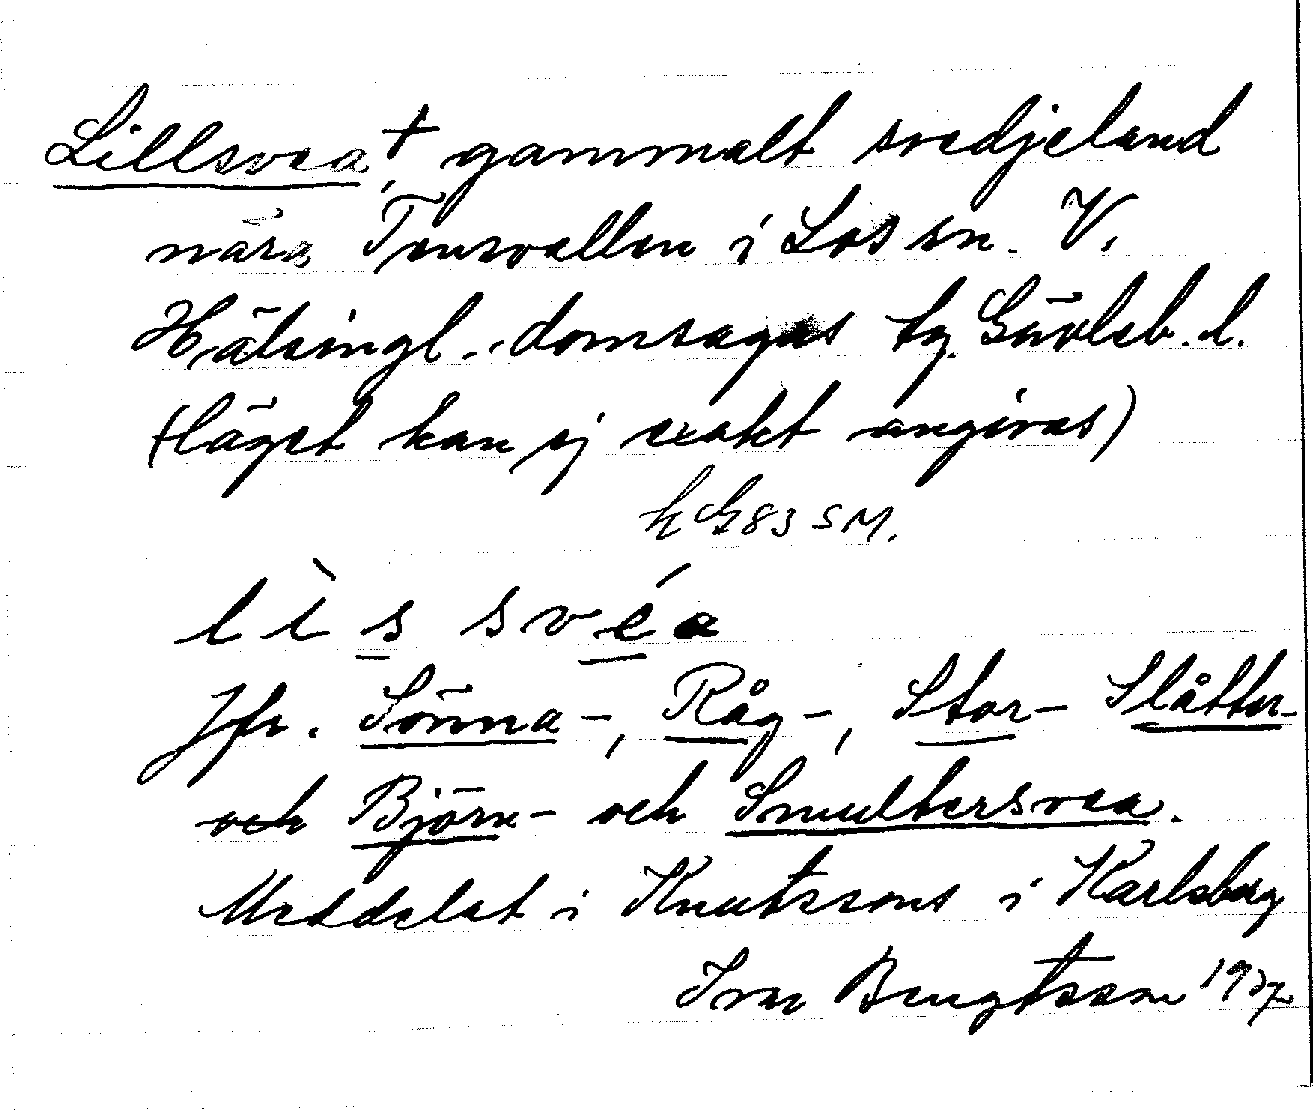 Lillsvea †, gammalt svedjeland
nära Tensvallen i Los sn. V.
Hälsingl. domsagas tg. Gävleb. l.
(läget kan ej exakt angivas)
83 SM.
l ì s s v é a
Jfr. Sönna-, Råg-, Stor- Slåtter-
och Björn- och Smultersvea.
Meddelat i Knutssons i Karlsberg
Ivar Bengtsson 1937